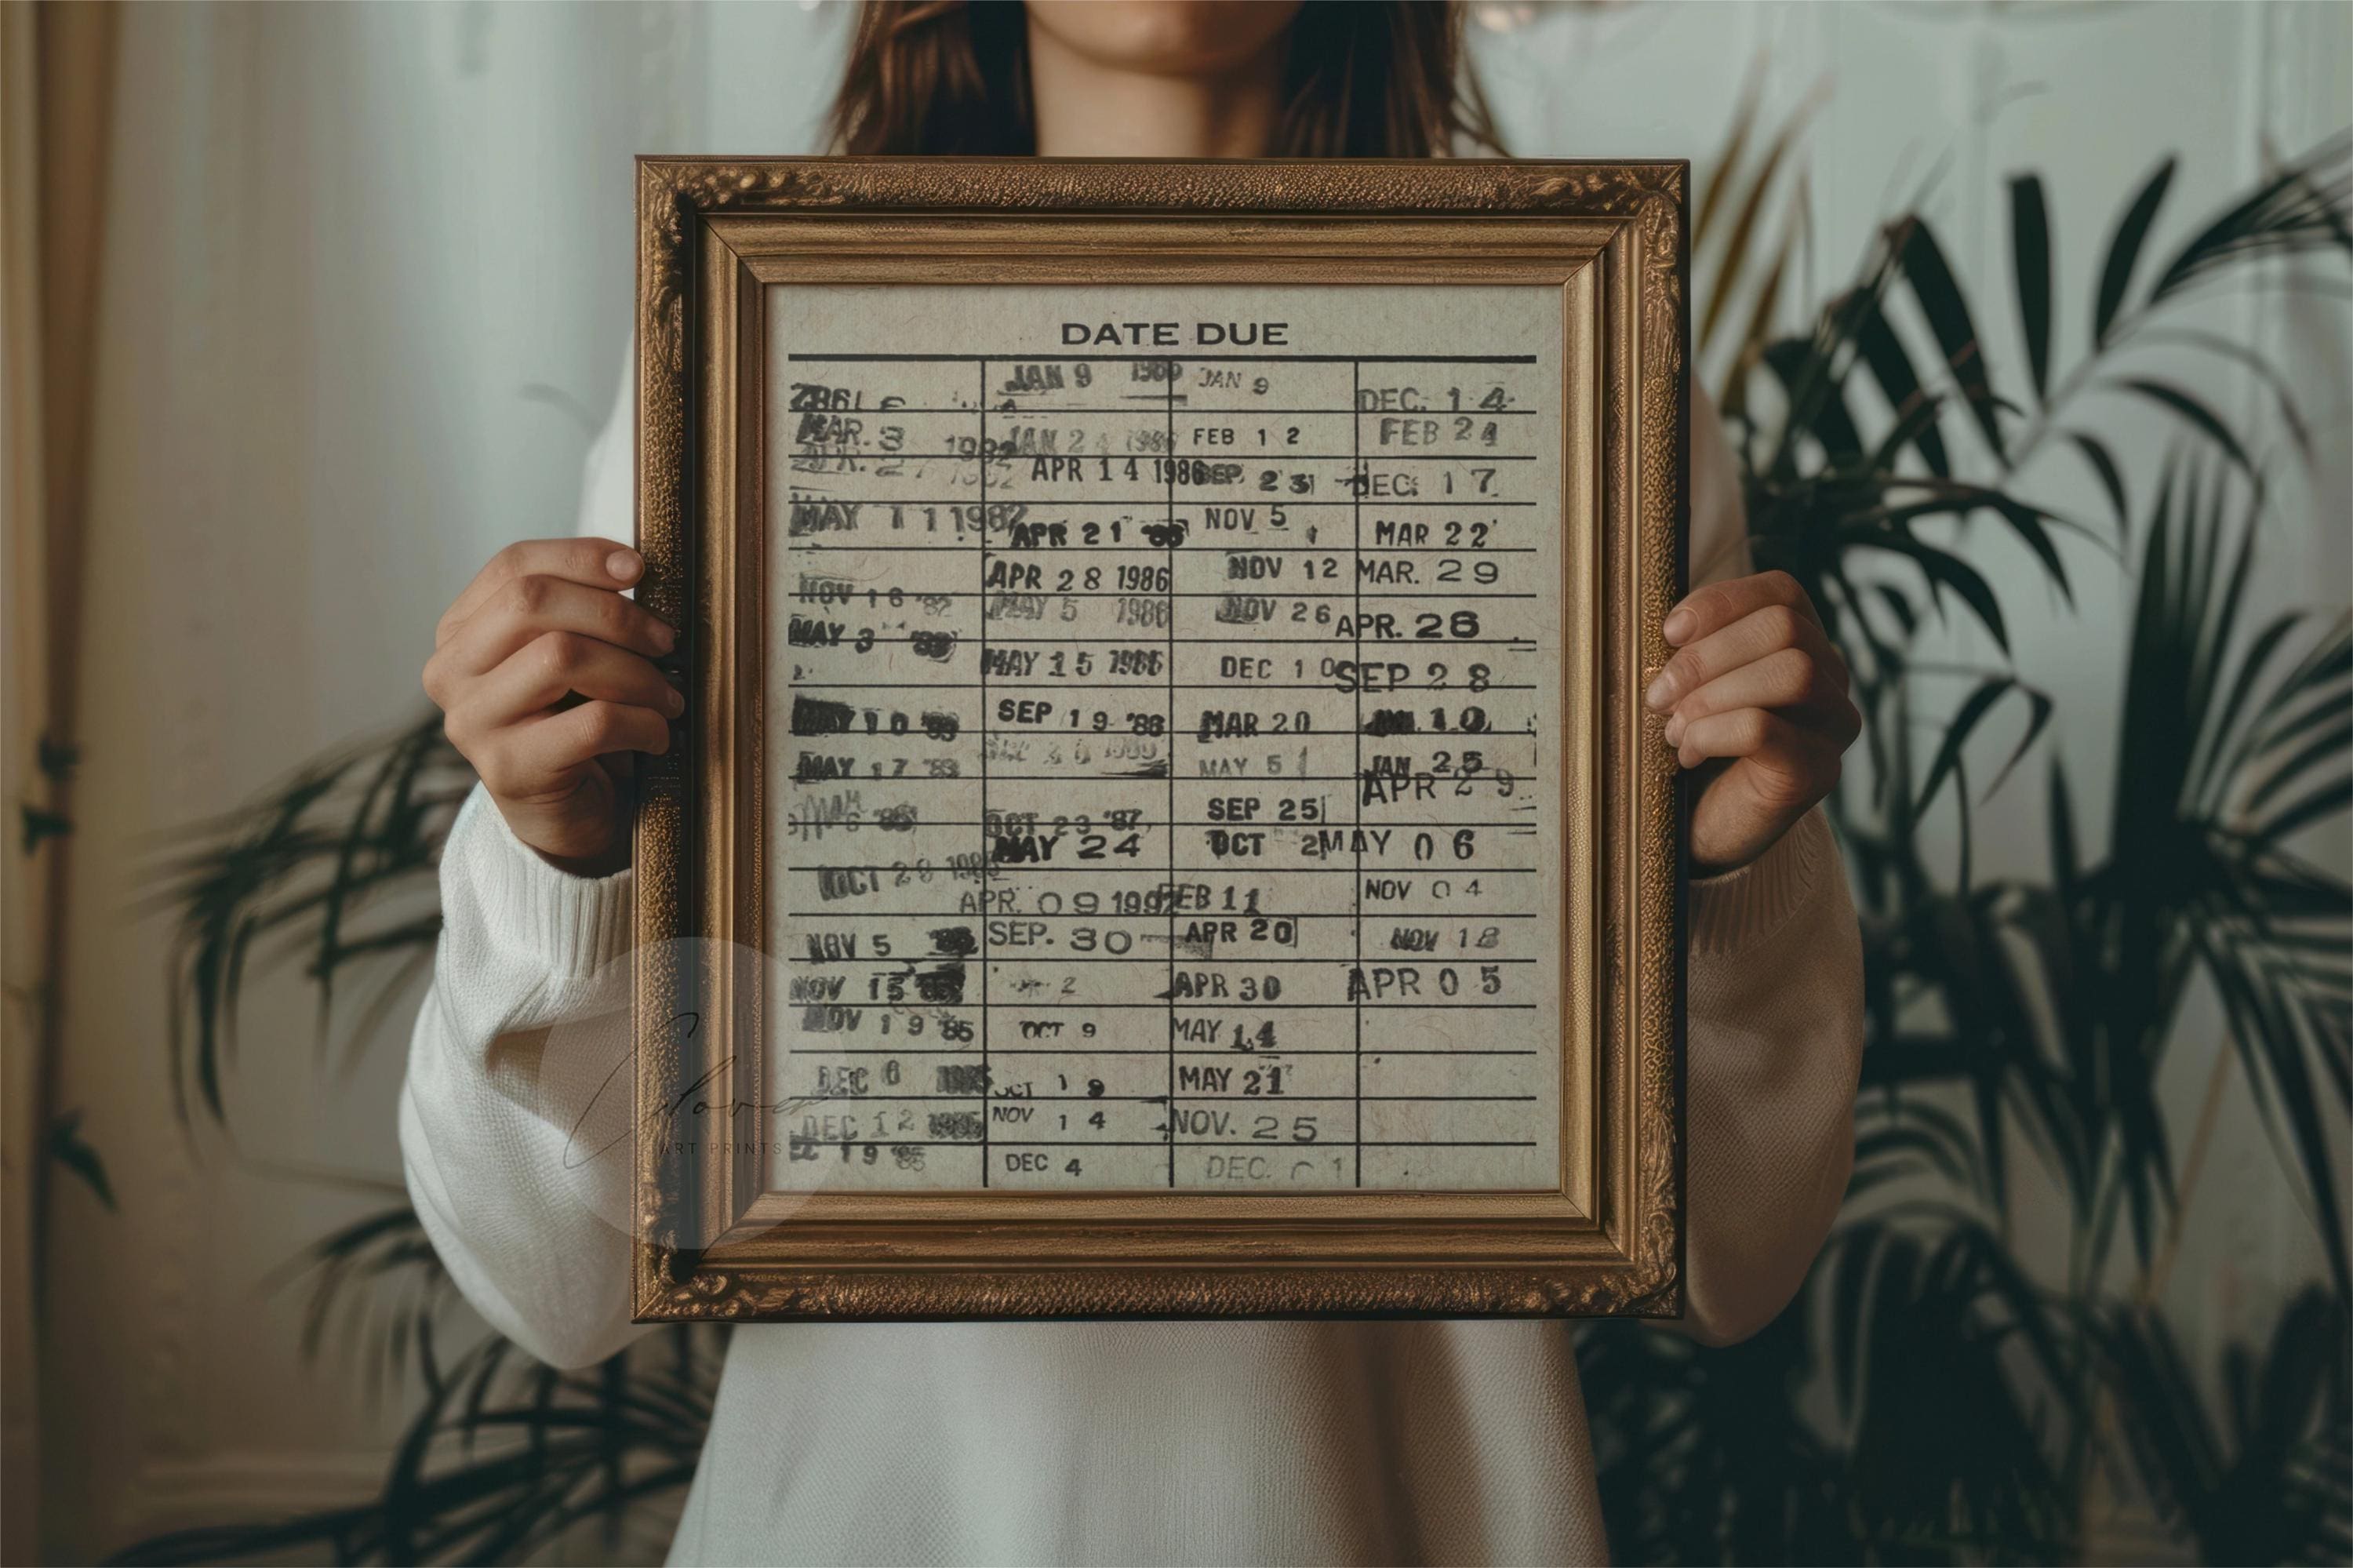 DATE DUE
MAR. 3 1982
APR. 27 1982
MAY 11 1982
NOV 16 '82
MAY 3 '83
MAY 10 '83
MAY 17 '83
OCT 28
NOV 5
NOV 15
NOV 19 '85
DEC 6
DEC 12 1985
19 '85
JAN 9 1986
JAN 1986
APR 14 1986
APR 21 '86
APR 28 1986
MAY 5 1986
MAY 15 1986
SEP 19 '86
OCT 23 '87
MAY 24
APR. 09 1992
SEP. 30
2
OCT 9
OCT 19
NOV 14
DEC 4
JAN 9
FEB 12
SEP 23
NOV 5
NOV 12
NOV 26
DEC 10
MAR 20
MAY 5
SEP 25
OCT 2
FEB 11
APR 20
APR 30
MAY 14
MAY 21
NOV. 25
DEC. 1
DEC. 14
FEB 24
DEC. 17
MAR 22
MAR. 29
APR. 26
SEP 28
10
JAN 25
APR 29
MAY 06
NOV 04
NOV 18
APR 05
ART PRINTS